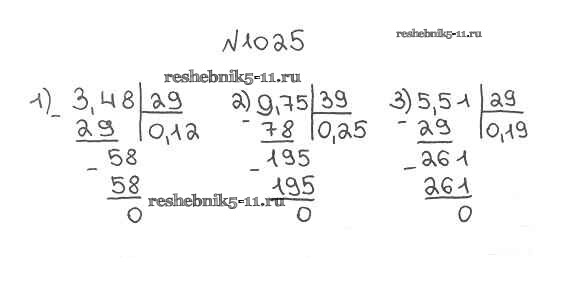 №1025
reshebnik5-11.ru
reshebnik5-11.ru
1) 3,48 | 29   2) 9,75 | 39   3) 5,51 | 29
- 29   0,12   - 78   0,25   - 29   0,19
- 58   - 195   - 261
58   195   261
0   reshebnik5-11.ru   0   0